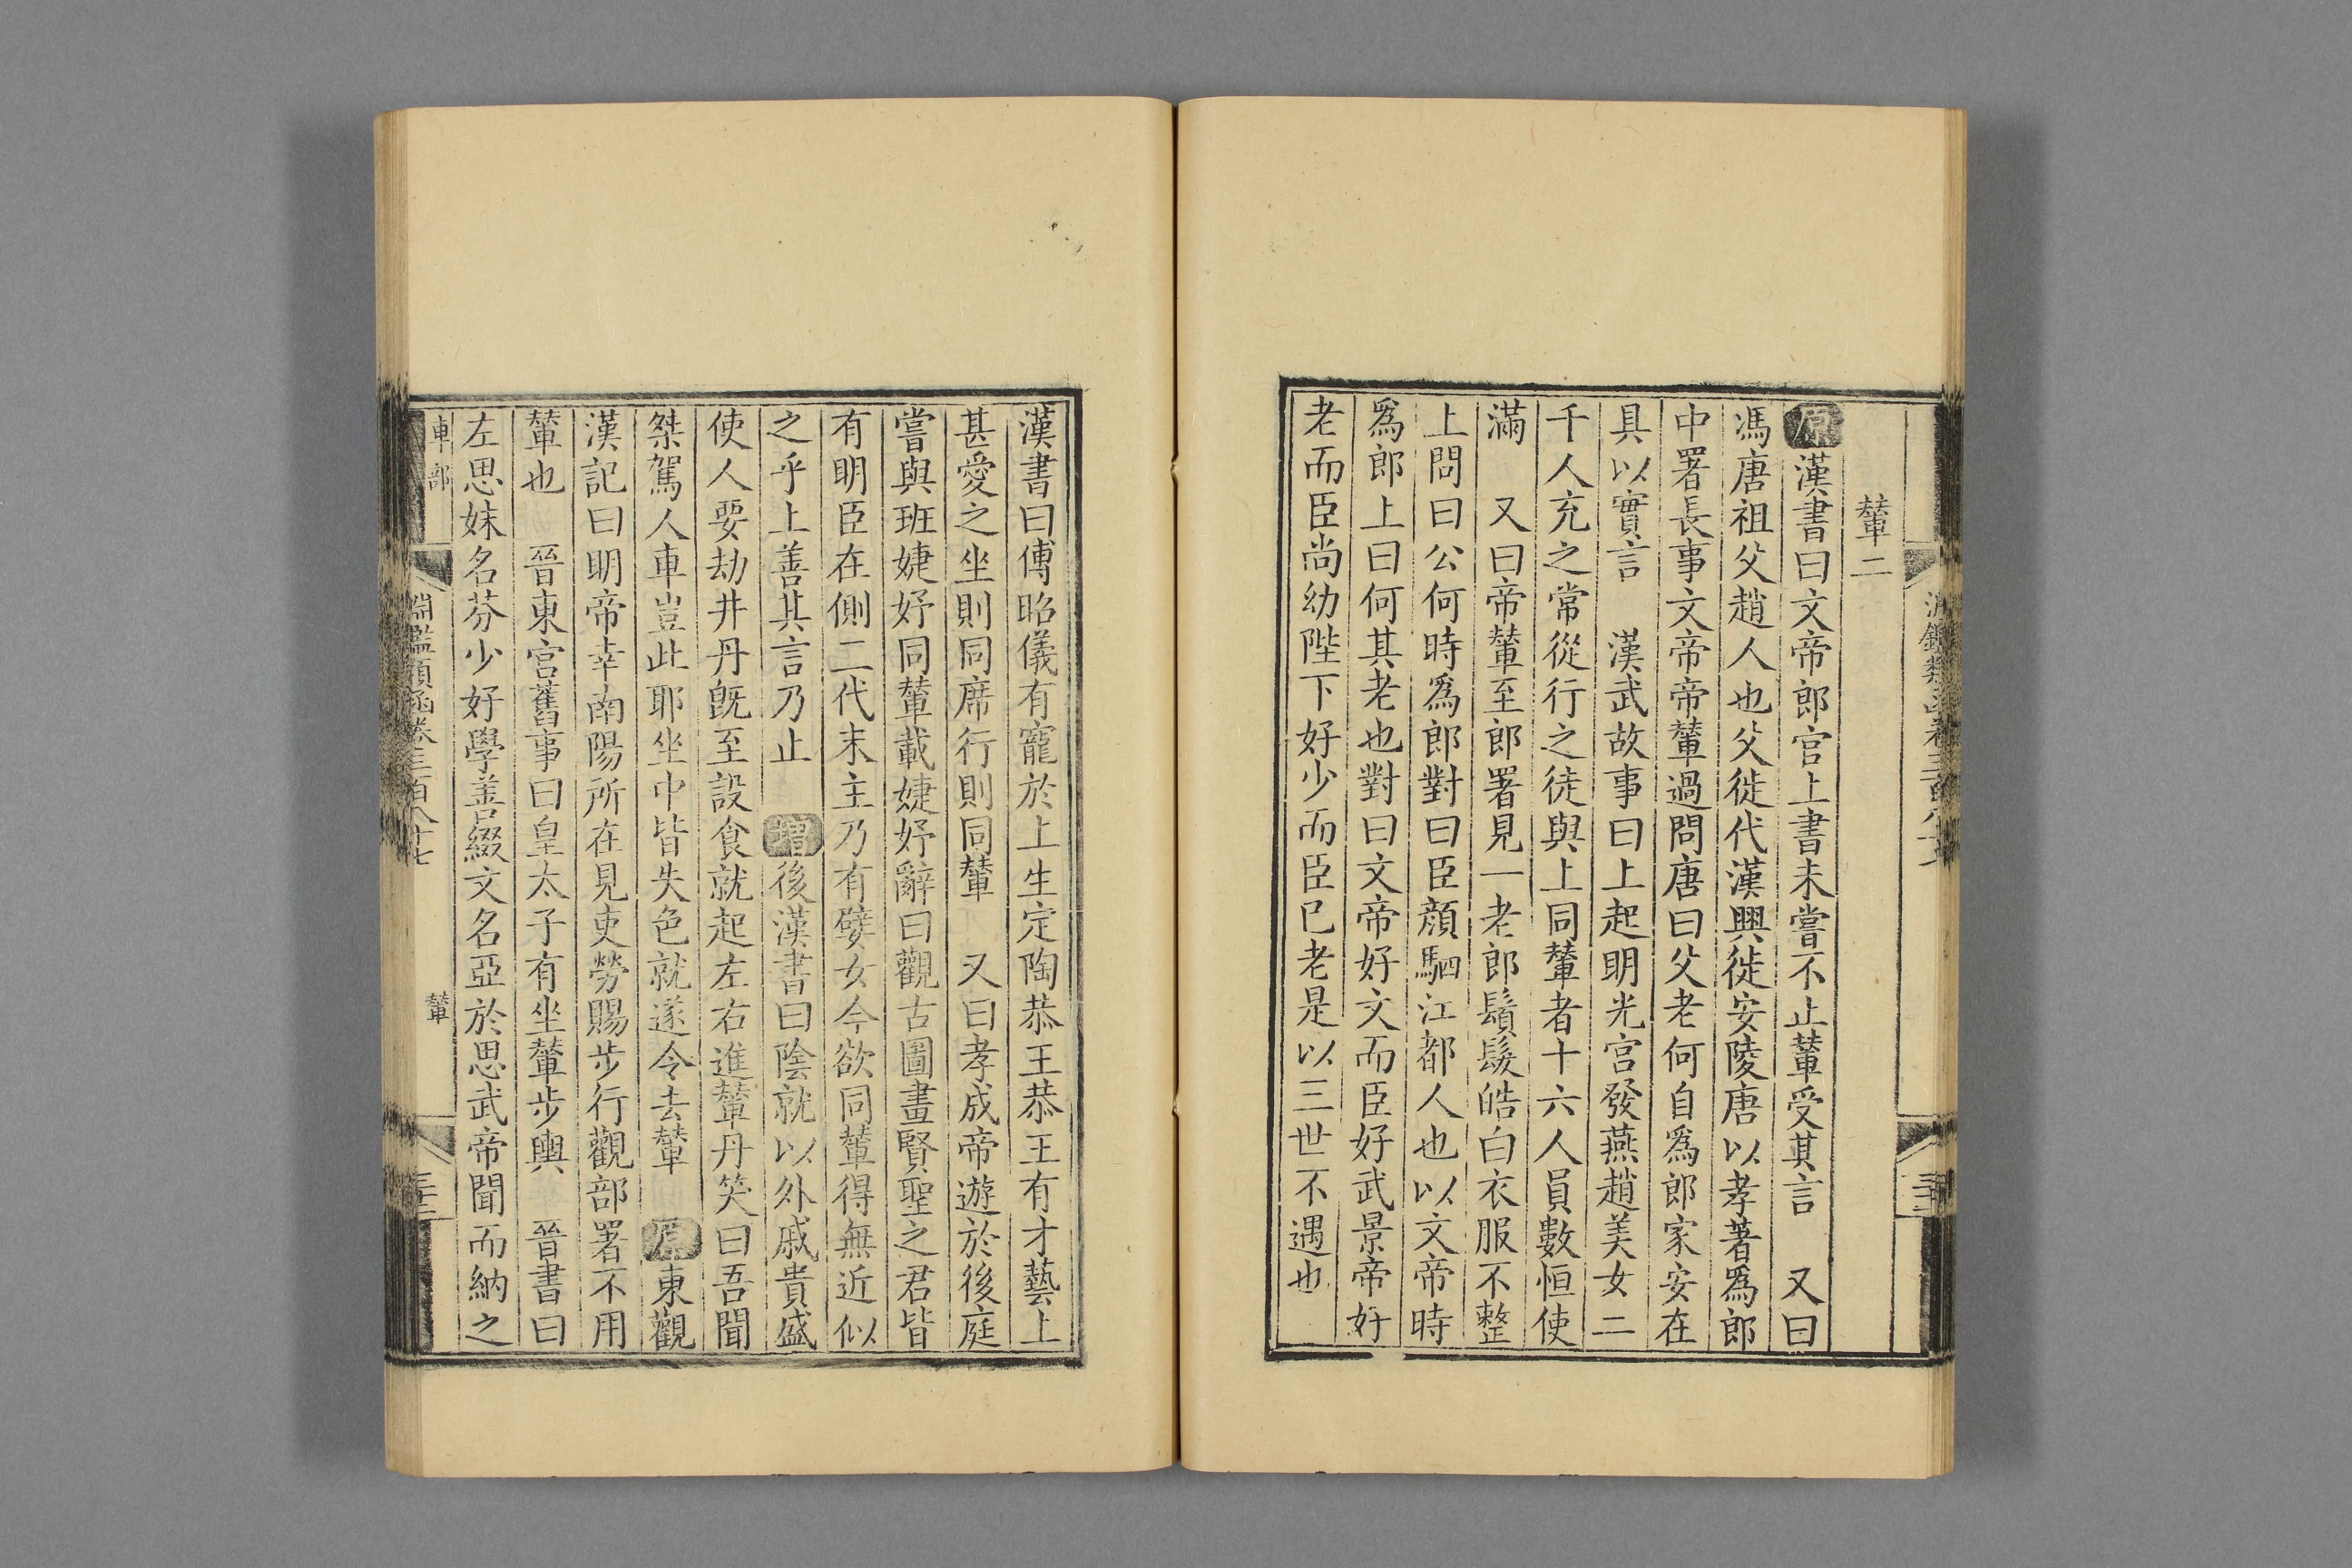 輦二
原漢書曰文帝郎宫上書未嘗不止輦受其言　又曰
馮唐祖父趙人也父徙代漢興徙安陵唐以孝著爲郎
中署長事文帝帝輦過問唐曰父老何自爲郎家安在
具以實言　漢武故事曰上起明光宫發燕趙美女二
千人充之常從行之徒與上同輦者十六人員數恒使
滿　又曰帝輦至郎署見一老郎鬚髮皓白衣服不整
上問曰公何時爲郎對曰臣顔駟江都人也以文帝時
爲郎上曰何其老也對曰文帝好文而臣好武景帝好
老而臣尚幼陛下好少而臣已老是以三世不遇也
漢書曰傅昭儀有寵於上生定陶恭王恭王有才藝上
甚愛之坐則同席行則同輦　又曰孝成帝遊於後庭
嘗與班婕妤同輦載婕妤辭曰觀古圖畫賢聖之君皆
有明臣在側二代末主乃有嬖女今欲同輦得無近似
之乎上善其言乃止　增後漢書曰陰就以外戚貴盛
使人要劫井丹旣至設食就起左右進輦丹笑曰吾聞
桀駕人車豈此耶坐中皆失色就遂令去輦　原東觀
漢記曰明帝幸南陽所在見吏勞賜步行觀部署不用
輦也　晉東宫舊事曰皇太子有坐輦步輿　晉書曰
左思妹名芬少好學善綴文名亞於思武帝聞而納之
車部　淵鑑類函卷三百八十七　輦